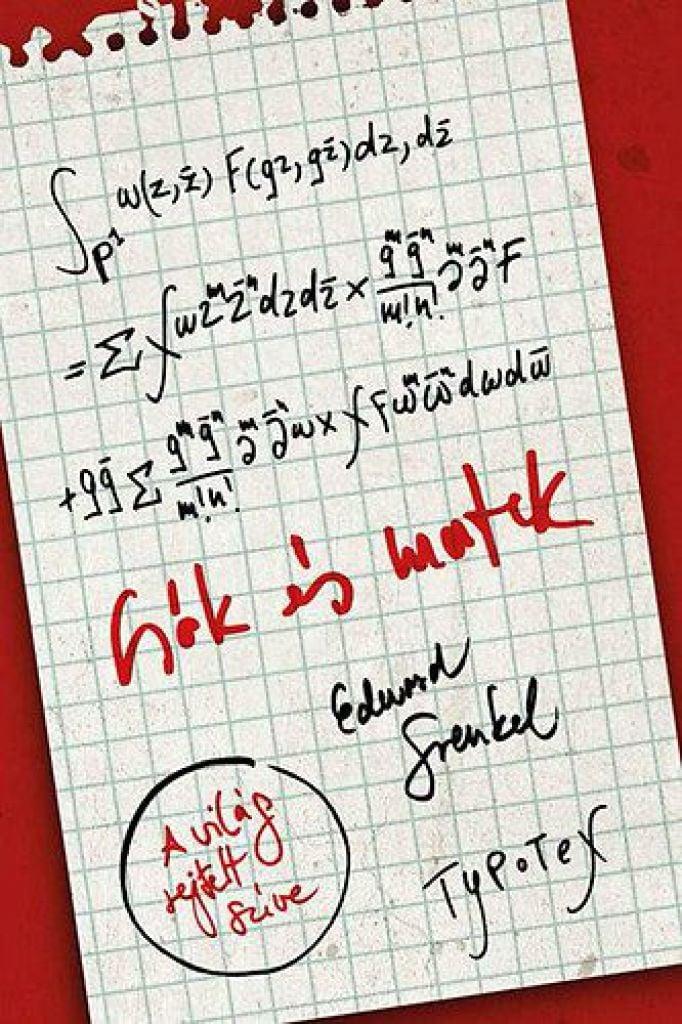 ∫_P¹ ω(z,z̄) F(qz,qz̄)dz,dz̄
= Σ∫ωz^m z̄^n dzdz̄ × q^m q̄^n/m!n! ∂^m ∂̄^n F
+qq̄ Σ q^m q̄^n/m!n! ∂^m ∂̄^n ω × ∫Fω^m ω̄^n dωdω̄
és matek
Edward
Frenkel
A világ
rejtett
szíve
TypoTeX